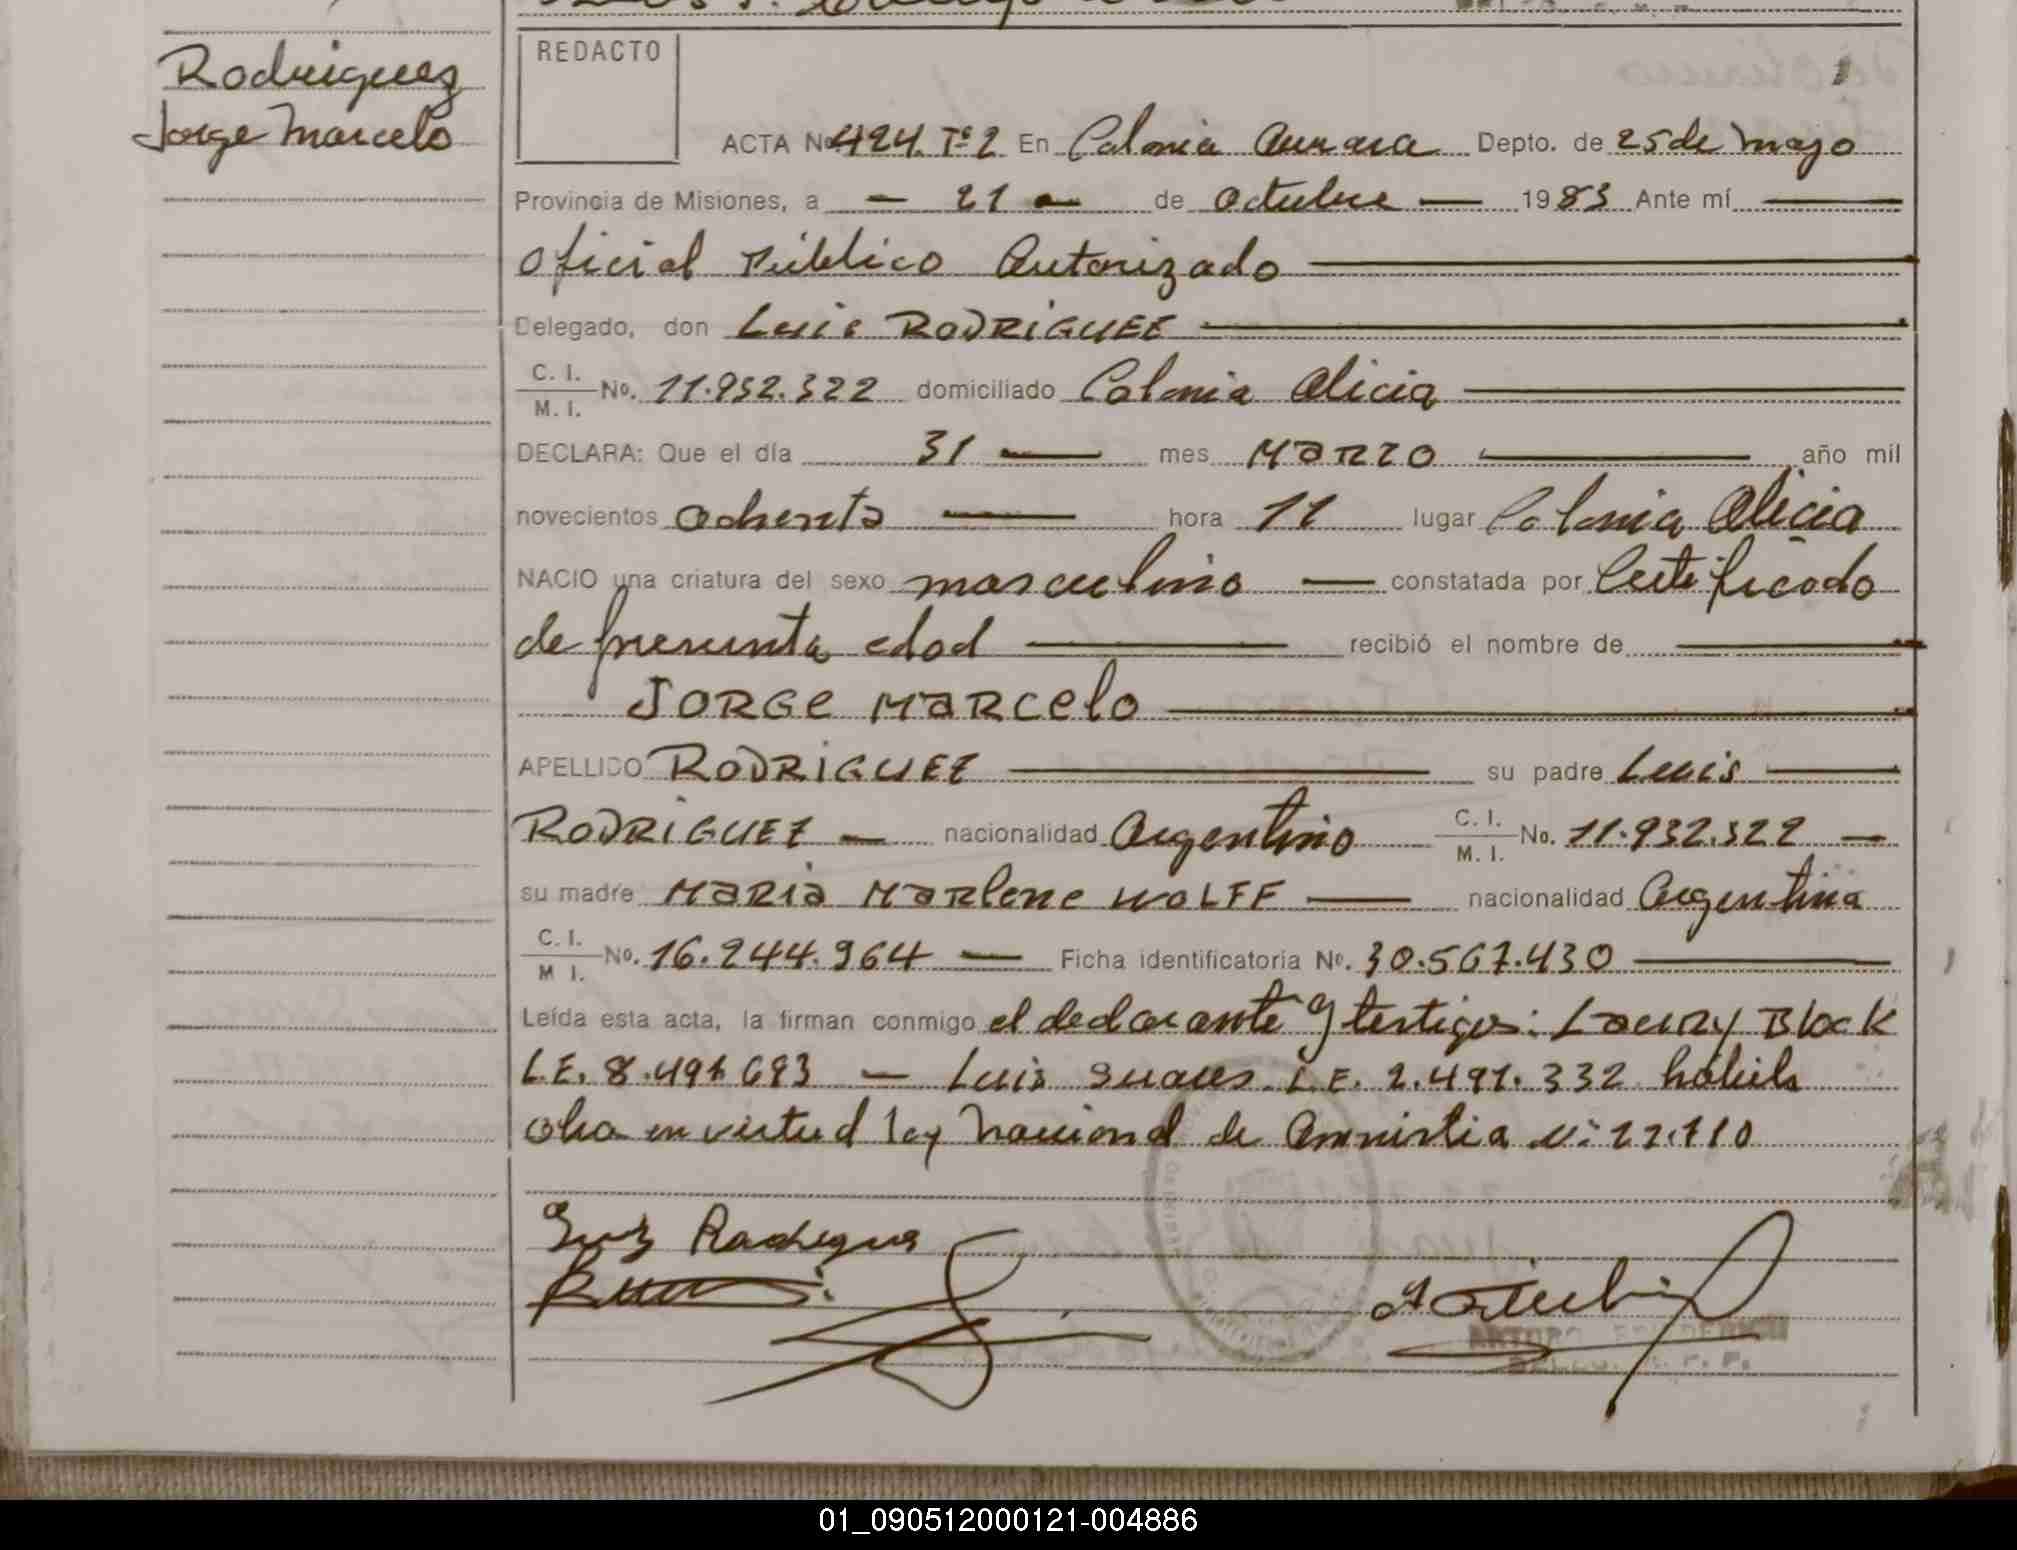 Rodriguez
Jorge Marcelo
REDACTO
ACTA Nº 424. Tº 2 En Colonia Aurora Depto. de 25 de Mayo
Provincia de Misiones, a — 21 — de Octubre — 1983 Ante mí —
Oficial Público Autorizado —
Delegado, don Luis RODRIGUEZ —
C. I. / M. I. No. 11.932.322 domiciliado Colonia Alicia —
DECLARA: Que el día 31 — mes MARZO — año mil
novecientos ochenta — hora 11 lugar Colonia Alicia
NACIO una criatura del sexo masculino — constatada por Certificado
de presunta edad — recibió el nombre de —
JORGE MARCELO —
APELLIDO RODRIGUEZ — su padre Luis —
RODRIGUEZ — nacionalidad Argentino C. I. / M. I. No. 11.932.322 —
su madre MARIA MARLENE WOLFF — nacionalidad Argentina
C. I. / M I. No. 16.244.964 — Ficha identificatoria Nº. 30.567.430 —
Leída esta acta, la firman conmigo el declarante y testigos: Laury Block
L.E. 8.491.693 — Luis Suares L.E. 2.491.332 hábiles
obra en virtud ley Nacional de Amnistia Nº 22.710
Luiz Rodrigues
ARTURO
01_090512000121-004886